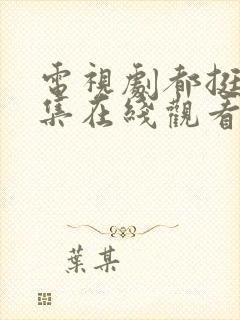 電視劇都挺
集在綫觀看
葉某